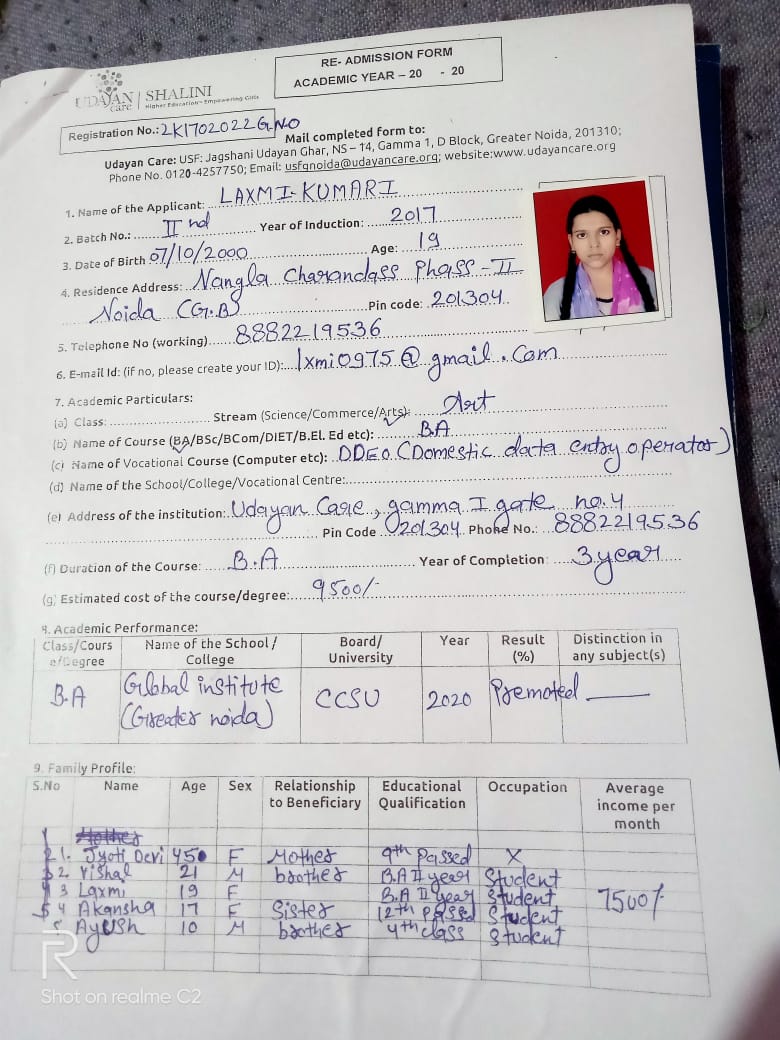 RE- ADMISSION FORM
ACADEMIC YEAR – 20 - 20
UDAYAN care | SHALINI
Higher Education - Empowering Girls
Registration No.: 2K1702022G.NO
Mail completed form to:
Udayan Care: USF: Jagshani Udayan Ghar, NS – 14, Gamma 1, D Block, Greater Noida, 201310;
Phone No. 0120-4257750; Email: usfgnoida@udayancare.org; website:www.udayancare.org
1. Name of the Applicant: LAXMI KUMARI
2. Batch No.: II nd Year of Induction: 2017
3. Date of Birth 07/10/2000 Age: 19
4. Residence Address: Nangla Charandass Phass-II
Noida (G.B) Pin code: 201304
5. Telephone No (working) 8882219536
6. E-mail Id: (if no, please create your ID): lxmi0975@gmail.com
7. Academic Particulars:
(a) Class: Stream (Science/Commerce/Arts): Art
(b) Name of Course (BA/BSc/BCom/DIET/B.El. Ed etc): B.A
(c) Name of Vocational Course (Computer etc): DDEO (Domestic data entry operator)
(d) Name of the School/College/Vocational Centre:
(e) Address of the institution: Udayan Care, gamma I gate no. 4
Pin Code 201304 Phone No.: 8882219536
(f) Duration of the Course: B.A Year of Completion: 3 year
(g) Estimated cost of the course/degree: 9500/-
8. Academic Performance:
Class/Course/Degree Name of the School / College Board/ University Year Result (%) Distinction in any subject(s)
B.A Gilobal institute (Greater noida) CCSU 2020 Premoted
9. Family Profile:
S.No Name Age Sex Relationship to Beneficiary Educational Qualification Occupation Average income per month
1. Jyoti Devi 45 F Mother 9th Passed X
2. Vishal 21 M brother B.A II year Student
3 Laxmi 19 F B.A II year Student 7500/-
4 Akansha 17 F Sister 12th passed Student
5 Ayush 10 M brother 4th class Student
R
Shot on realme C2